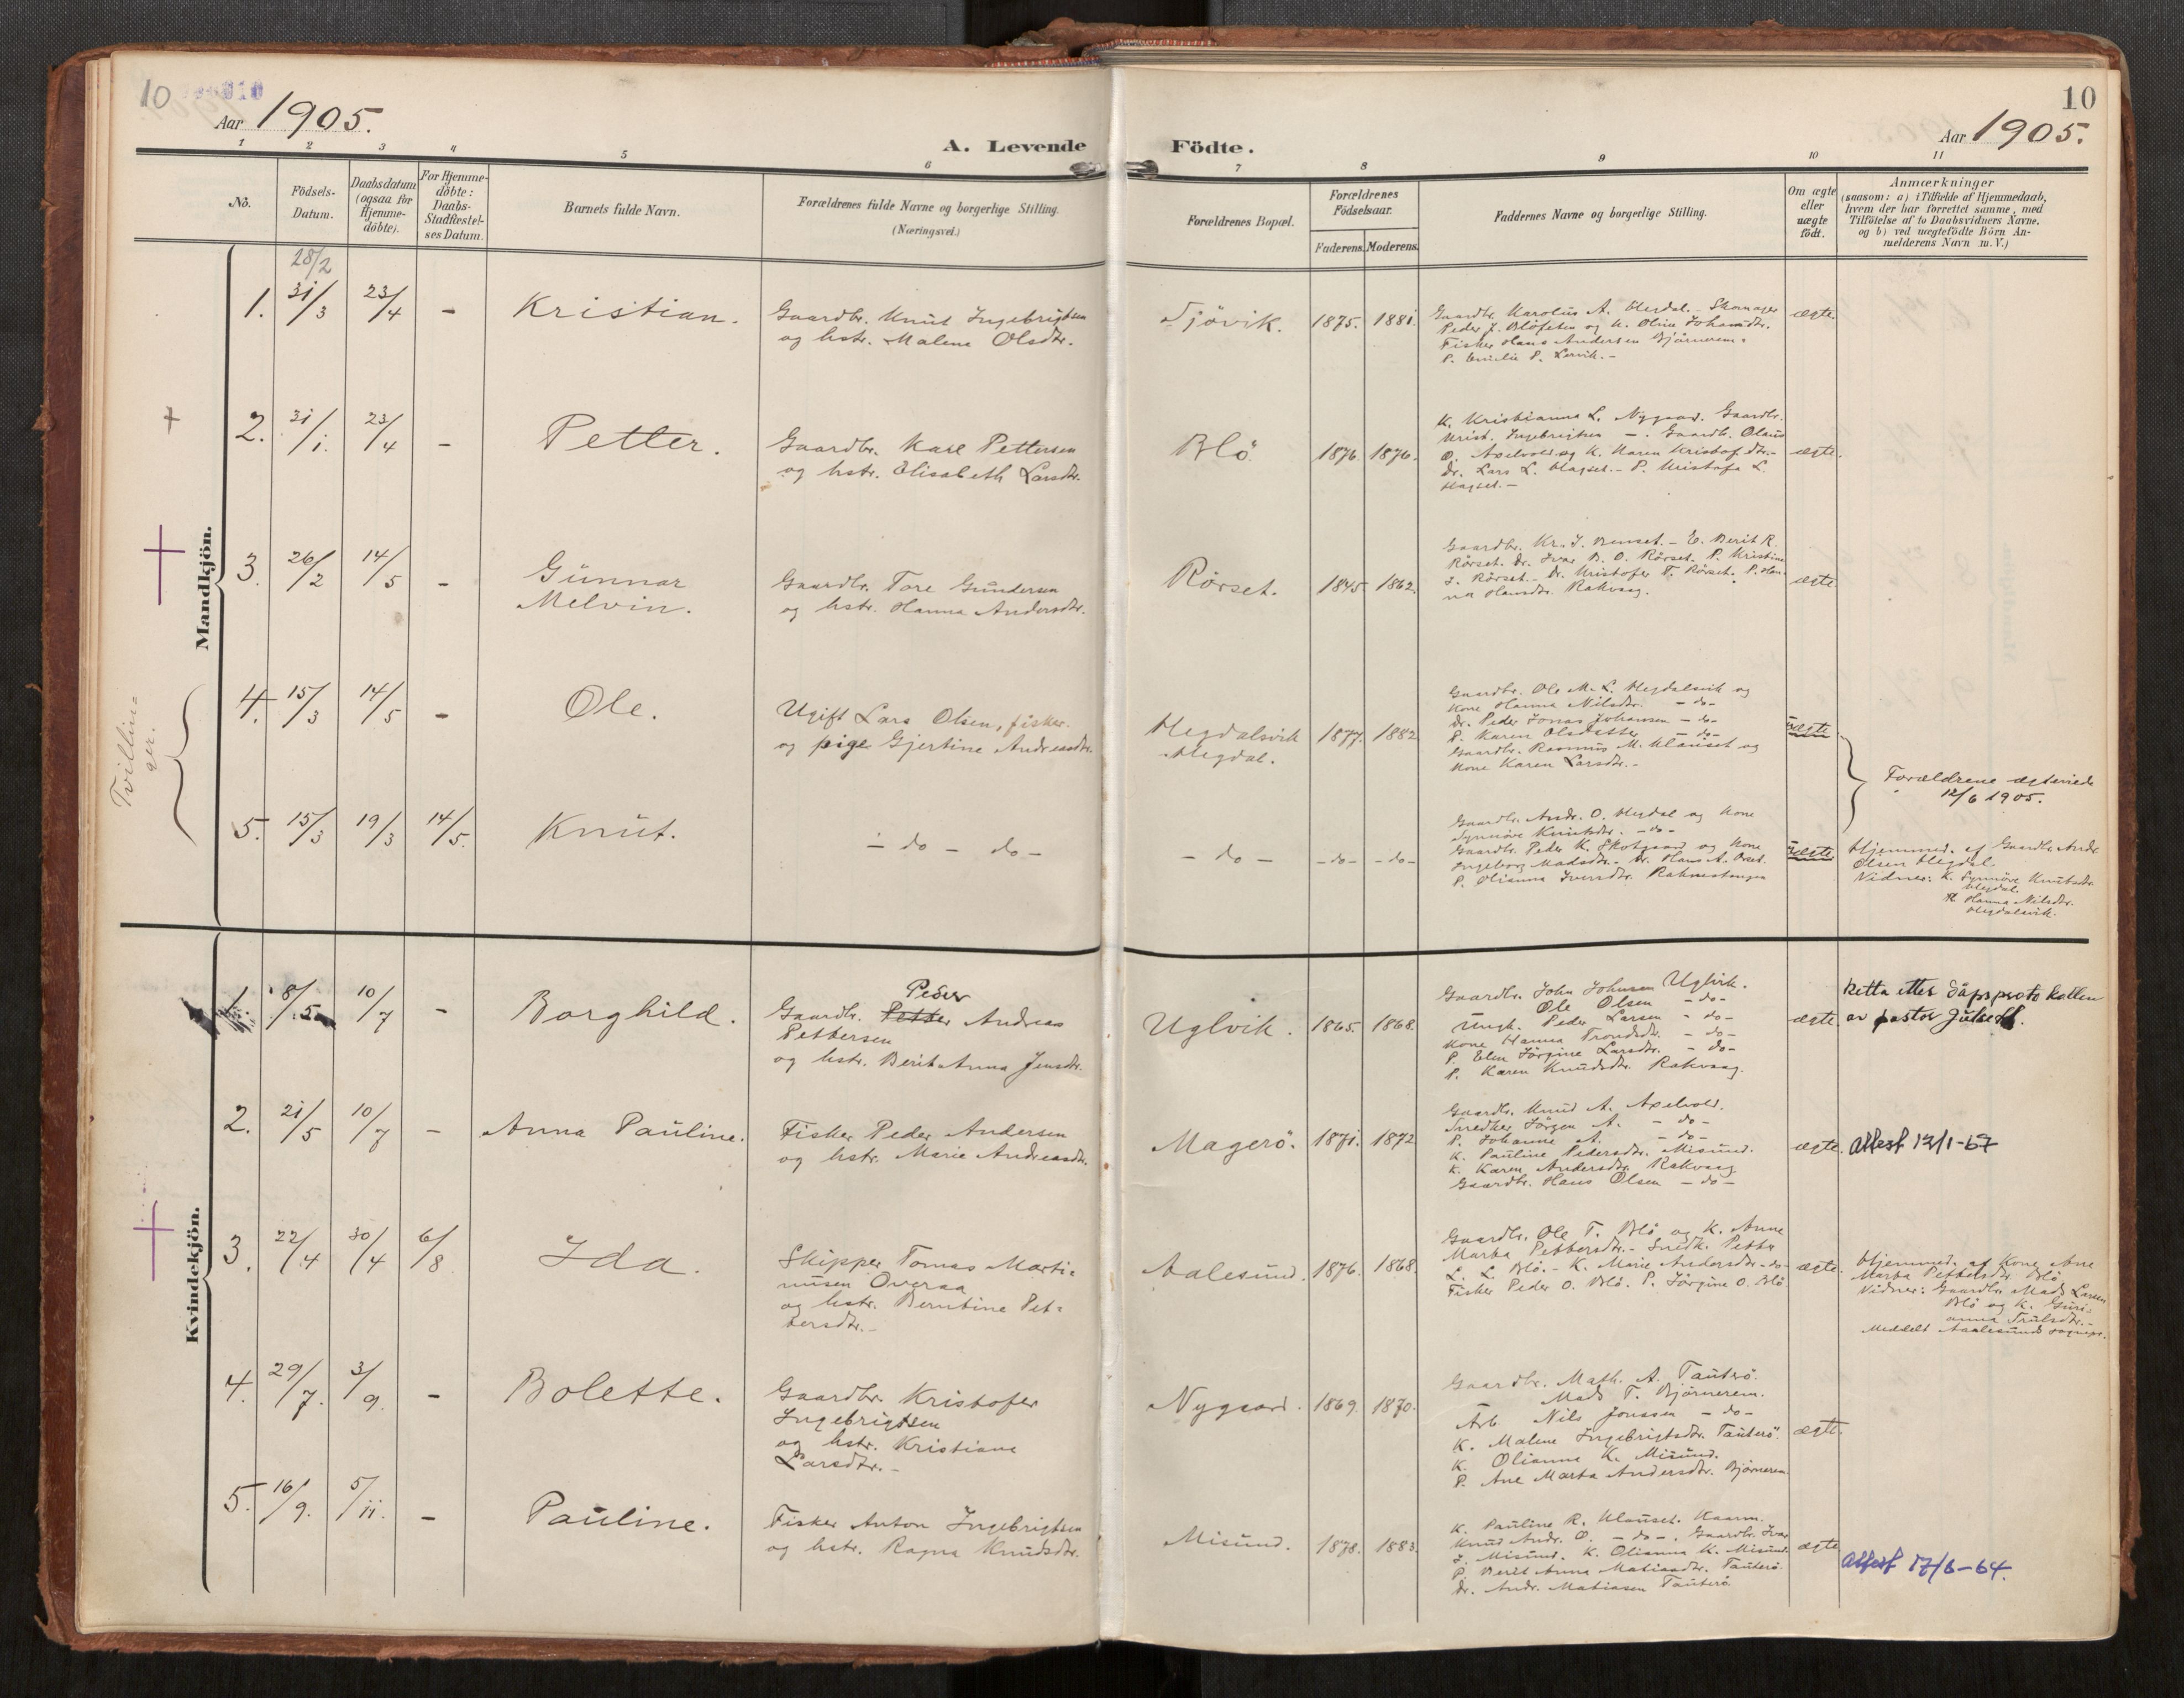 10
10
Aar 1905.
A. Levende Födte.
Aar 1905.
1 2 3 4 5 6 7 8 9 10 11
No.
Födsels-
Datum.
Daabsdatum
(ogsaa for
Hjemme-
döbte).
For Hjemme-
döbte:
Daabs-
Stadfæstel-
ses Datum.
Barnets fulde Navn.
Forældrenes fulde Navne og borgerlige Stilling.
(Næringsvei.)
Forældrenes Bopæl.
Forældrenes
Födselsaar.
Faderens. Moderens.
Faddernes Navne og borgerlige Stilling.
Om ægte
eller
uægte
födt.
Anmærkninger
(saasom: a) i Tilfælde af Hjemmedaab,
hvem der har forrettet samme, med
Tilföielse af to Daabsvidners Navne.
og b) ved uægtefödte Börn An-
melderens Navn m.V.)
Mandkjön.
28/2
1. 31/3 23/4 - Kristian.
Gaardbr. Knut Ingebrigtsen
og hstr. Malene Olsdtr.
Sjövik. 1875. 1881.
Gaardbr. Karolus A. Hegdal. - Skomager
Peder J. Blöfeten og K. Oline Johansdtr.
Fisker Hans Andersen Björnerem.
P. Emilie P. Lervik. -
ægte.
2. 31/1. 23/4 - Petter.
Gaardbr. Karl Pettersen
og hstr. Elisabeth Larsdtr.
Blö 1876. 1876.
K. Kristianna L. Nygaard. Gaardbr.
Krist. Ingebrigtsen - . Gaardb. Olaus
O. Axelvold og K. Karen Kristofdtr. -
Dr. Lars L. Hagset. - P. Kristofa L.
Hagset. -
ægte.
3. 26/2 14/5 - Gunnar
Melvin.
Gaardbr. Tore Gundersen
og hstr. Hanna Andersdtr.
Rörset. 1845. 1862.
Gaardbr. Kr. J. Benset. - E. Berit R.
Rörset. Dr. Ivar B. O. Rörset. P. Kristine
J. Rörset. - Dr. Kristofer T. Rörset. P. Han-
na Hansdtr. Rakvaag.
ægte.
Tvillin=
ger.
4. 15/3 14/5 - Ole.
Ugift Lars Olsen, fisker.
og pige Gjertine Andreasdtr.
Hegdalsvik
Hegdal.
1877. 1882
Gaardbr. Ole M. L. Hegdalsvik og
Kone Hanna Nilsdtr. - do -
Dr. Peder Jonas Johansen - do -
P. Karen Olsdatter - do -
Gaardbr. Rasmus M. Klauset og
Kone Karen Larsdtr. -
uægte
Forældrene ægteviede
12/6 1905.
5. 15/3 19/3 14/5. Knut.
- do - do -
- do - - do - - do -
Gaardbr. Andr. O. Hegdal og Kone
Synnöve Knutsdtr. - do -
Gaardbr. Peder K. Skotgaard og Kone
Ingeborg Madsdtr. - Dr. Hans A. Orset.
P. Olianna Iversdtr. Raknestangen
uægte
Hjemmed. af Gaardbr. Andr.
Olsen Hegdal.
Vidner: K. Synnöve Knutsdtr.
Hegdal.
K. Hanna Nilsdtr.
Hegdalsvik.
Kvindekjön.
1. 8/5 10/7 - Borghild.
Peder
Gaardbr. Petter Andreas
Pettersen
og hstr. Berit Anna Jensdtr.
Uglvik. 1865. 1868.
Gaardbr. John Johnsen Uglvik.
Ole Olsen - do -
Ungk. Peder Larsen - do -
Kone Hanna Trondsdtr. - do -
P. Elen Jörgine Larsdtr. - do -
P. Karen Knudsdtr. Rakvaag.
ægte.
Retta etter dåpsprotokollen
av pastor Julseth.
2. 21/5 10/7 - Anna Pauline.
Fisker Peder Andersen
og hstr. Marie Andreasdtr.
Magerö. 1871. 1872
Gaardbr. Knud A. Axelvold.
Snedker Jörgen A. - do -
P. Johanne A. - do -
K. Pauline Pedersdtr. Misund.
K. Karen Andersdtr. Rakvaag
Gaardbr. Hans Olsen - do -
ægte.
Attest 17/1-67
3. 22/4 30/4 6/8 Ida.
Skipper Tomas Marti=
nusen Overaa
og hstr. Berntine Pet=
tersdtr. -
Aalesund. 1876. 1868.
Gaardbr. Ole T. Blö og K. Anne
Marta Pettersdtr. - Snedk. Petter
L. L. Blö. - K. Marie Andersdtr. - do -
Fisker Peder O. Blö. P. Jörgine O. Blö
ægte.
Hjemmed. af Kone Ane
Marta Pettersdtr. Blö
Vidner: Gaardbr. Mads Larsen
Blö og K. Guri=
anna Trulsdtr. -
Meddelt Aalesunds sognepr.
4. 29/7. 3/9. - Bolette.
Gaardbr. Kristofer
Ingebrigtsen
og hstr. Kristiane
Larsdtr. -
Nygaard. 1869. 1870.
Gaardbr. Math. A. Tauterö.
Mads T. Björnerem.
Arb. Nils Jonssen - do -
K. Malene Ingebrigtsdtr. Tauterö.
K. Olianna K. Misund.
P. Ane Marta Andersdtr. Björnerem.
ægte.
5. 16/9. 5/11. - Pauline.
Fisker Anton Ingebrigtsen
og hstr. Ragna Knudsdtr.
Misund. 1878. 1883.
K. Pauline R. Klauset. Kaarm.
Knud Andr. O. - do - . Gaardbr. Ivar
J. Misund. K. Olianna K. Misund.
P. Berit Anna Matiasdtr. Tauterö.
Dr. Andr. Matiasen Tauterö.
ægte
Attest 17/6-64.